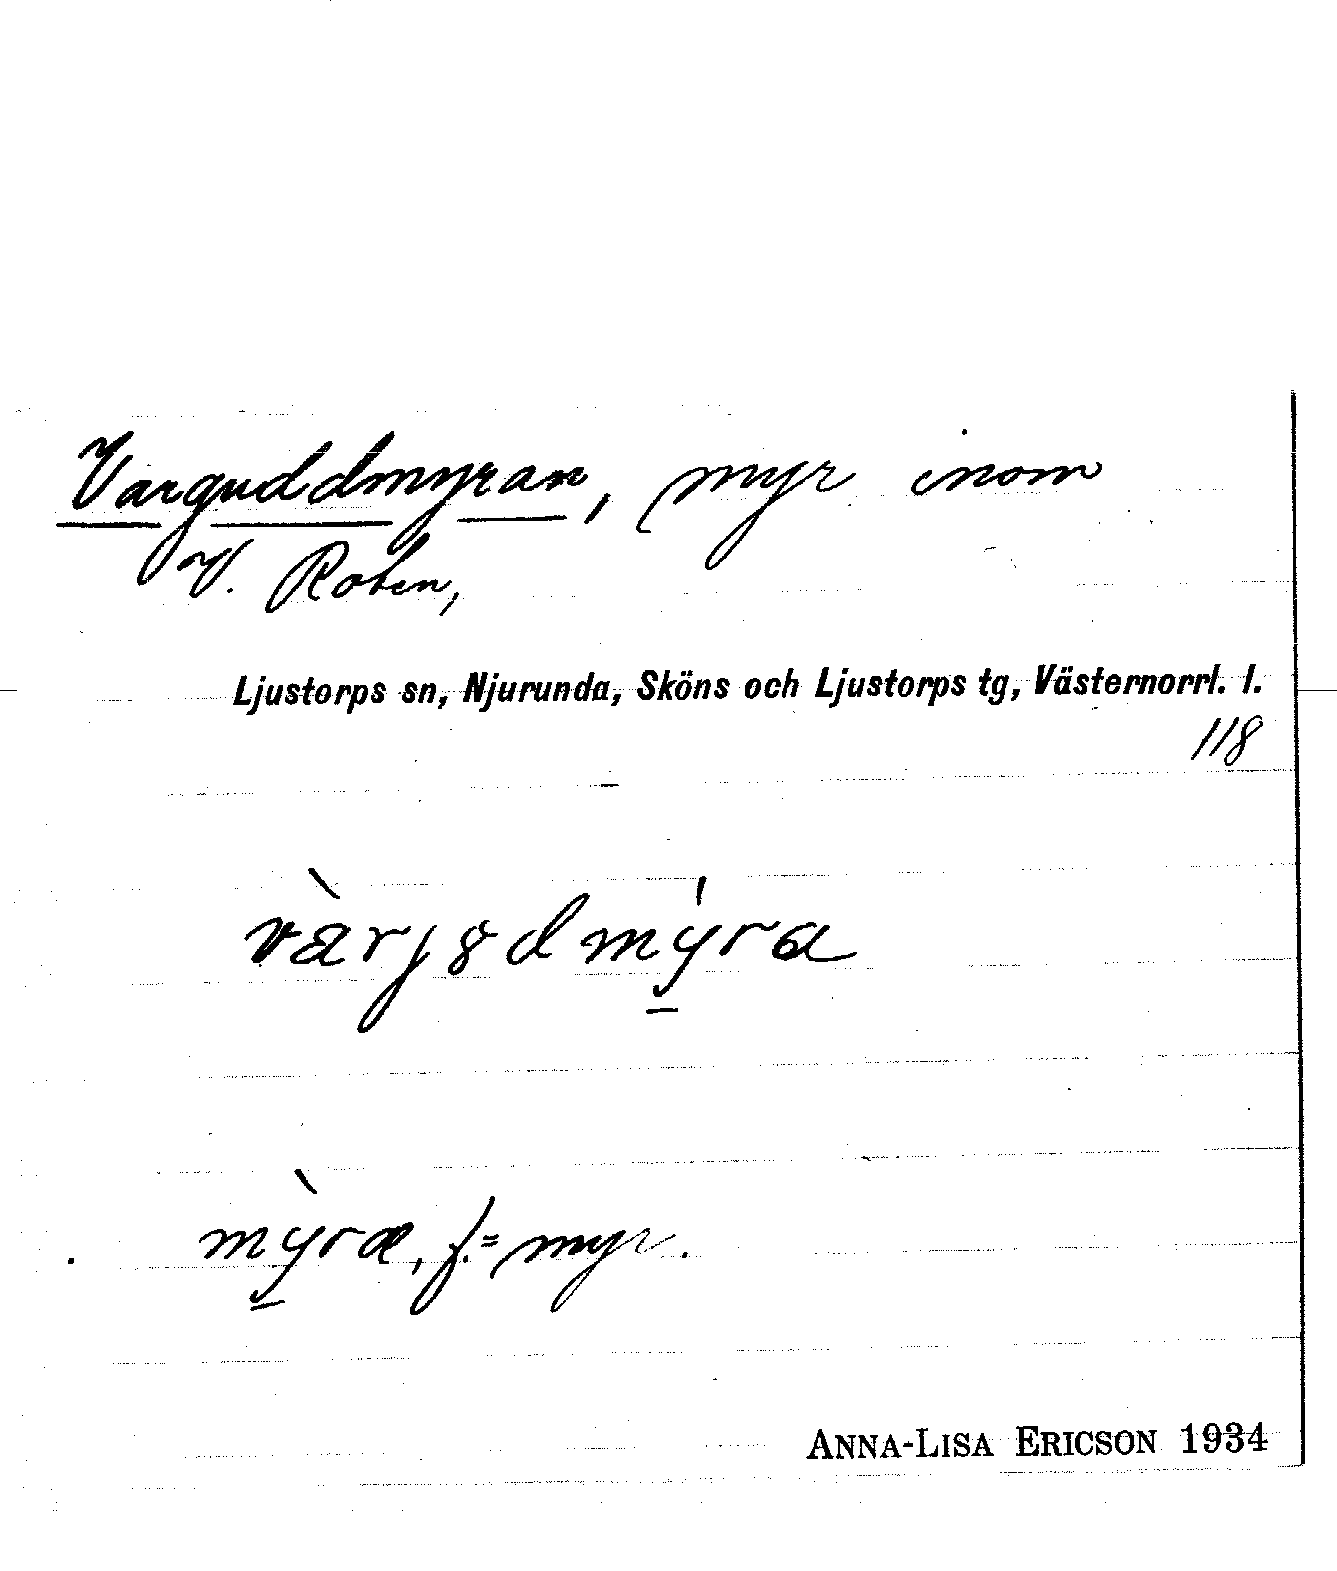 Varguddmyran, myr inom
V. Roten,
Ljustorps sn, Njurunda, Sköns och Ljustorps tg, Västernorrl. l.
118
vàrjȣdmy̠̍ra
mỳ̠ræ, f.= myr.
ANNA-LISA ERICSON 1934